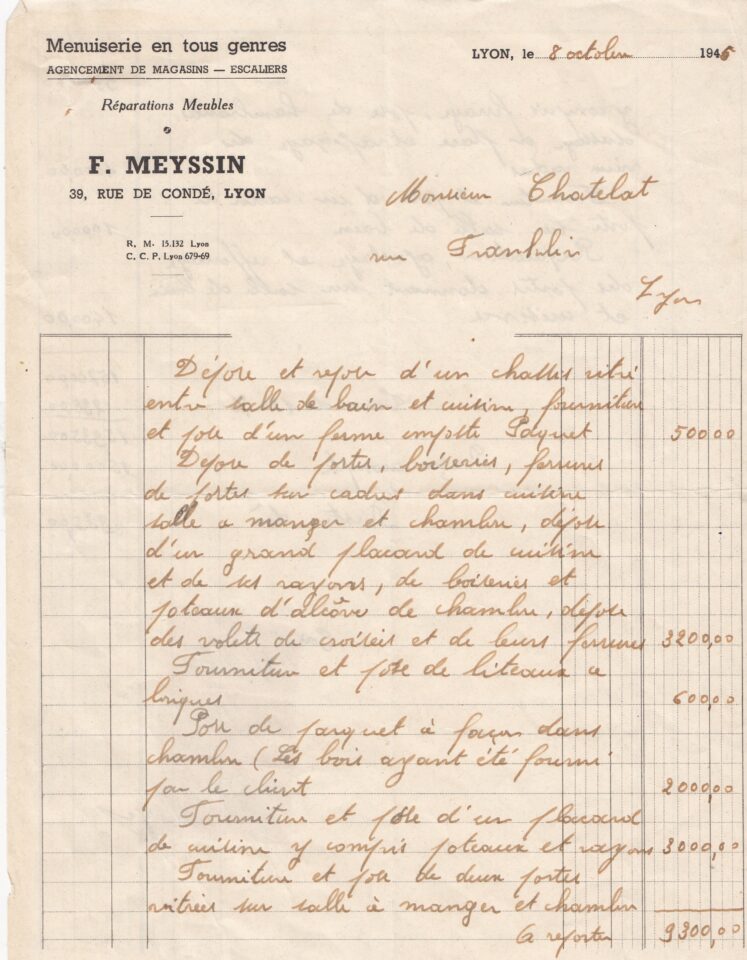 Menuiserie en tous genres
AGENCEMENT DE MAGASINS — ESCALIERS
Réparations Meubles
F. MEYSSIN
39, RUE DE CONDÉ, LYON
R. M. 15.132 Lyon
C. C. P. Lyon 679-69
LYON, le 8 octobre 1945
Monsieur Chatelat
rue Franklin
Lyon
Dépose et repose d'un chassis vitré
entre salle de bain et cuisine, fourniture
et pose d'un ferme imposte Paquet 500,00
Dépose de portes, boiseries, ferrures
de portes sur cadres dans cuisine
salle a manger et chambre, dépose
d'un grand placard de cuisine
et de ses rayons, de boiseries et
poteaux d'alcôve de chambre, dépose
des volets de croisées et de leurs ferrures 3200,00
Fourniture et pose de liteaux a
briques 600,00
Pose de parquet à façon dans
chambre (Les bois ayant été fourni
par le client 2000,00
Fourniture et pose d'un placard
de cuisine y compris poteaux et rayons 3000,00
Fourniture et pose de deux portes
vitrées sur salle à manger et chambre
A reporter 9300,00